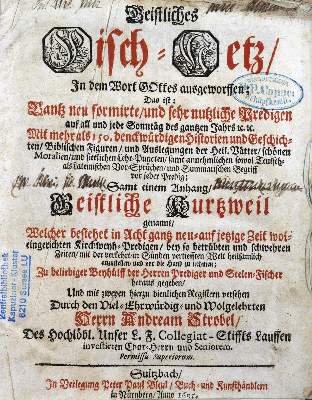 Geistliches
Fisch-Netz/
In dem Wort GOttes ausgeworffen;
Das ist:
Gantz neu formirte/ und sehr nutzliche Predigen
auf all und jede Sonntäg des gantzen Jahrs
Mit mehr als 150. denckwürdigen Historien und Geschich-
ten/ Biblischen Figuren/ und Auslegungen der Heil. Vätter/ schönen
Moralien/ und sittlichen Lehr-Puncten/ samt annehmlichen sowol Teutsch-
als Lateinischen Vor-Sprüchen/ und Summarischen Begriff
vor jeder Predig;
Samt einem Anhang/
Geistliche Kurtzweil
genannt/
Welcher bestehet in Acht gantz neu-auf jetzige Zeit wol-
eingerichten Kirchweyh-Predigen/ bey so betrübten und schwehren
Zeiten/ mit der verkehrt-in Sünden vertiefften Welt heilsamlich
Zu beliebiger Beyhülff der Herren Prediger und Seelen-Fischer
heraus gegeben/
Und mit zweyen hierzu dienlichen Registern versehen
Durch den Viel-Ehrwürdig-und Wolgelehrten
Herrn Andream Strobel/
Des Hochlöbl. Unser L. F. Collegiat-Stiffts Lauffen
investierten Chor-Herrn und Seniorem.
Permissu Superiorum.
Sultzbach/
In Verlegung Peter Paul Bleul/ Buch-und Kunsthändlern
in Nürnberg/ Anno
Kapuziner
6210 Sursee LU